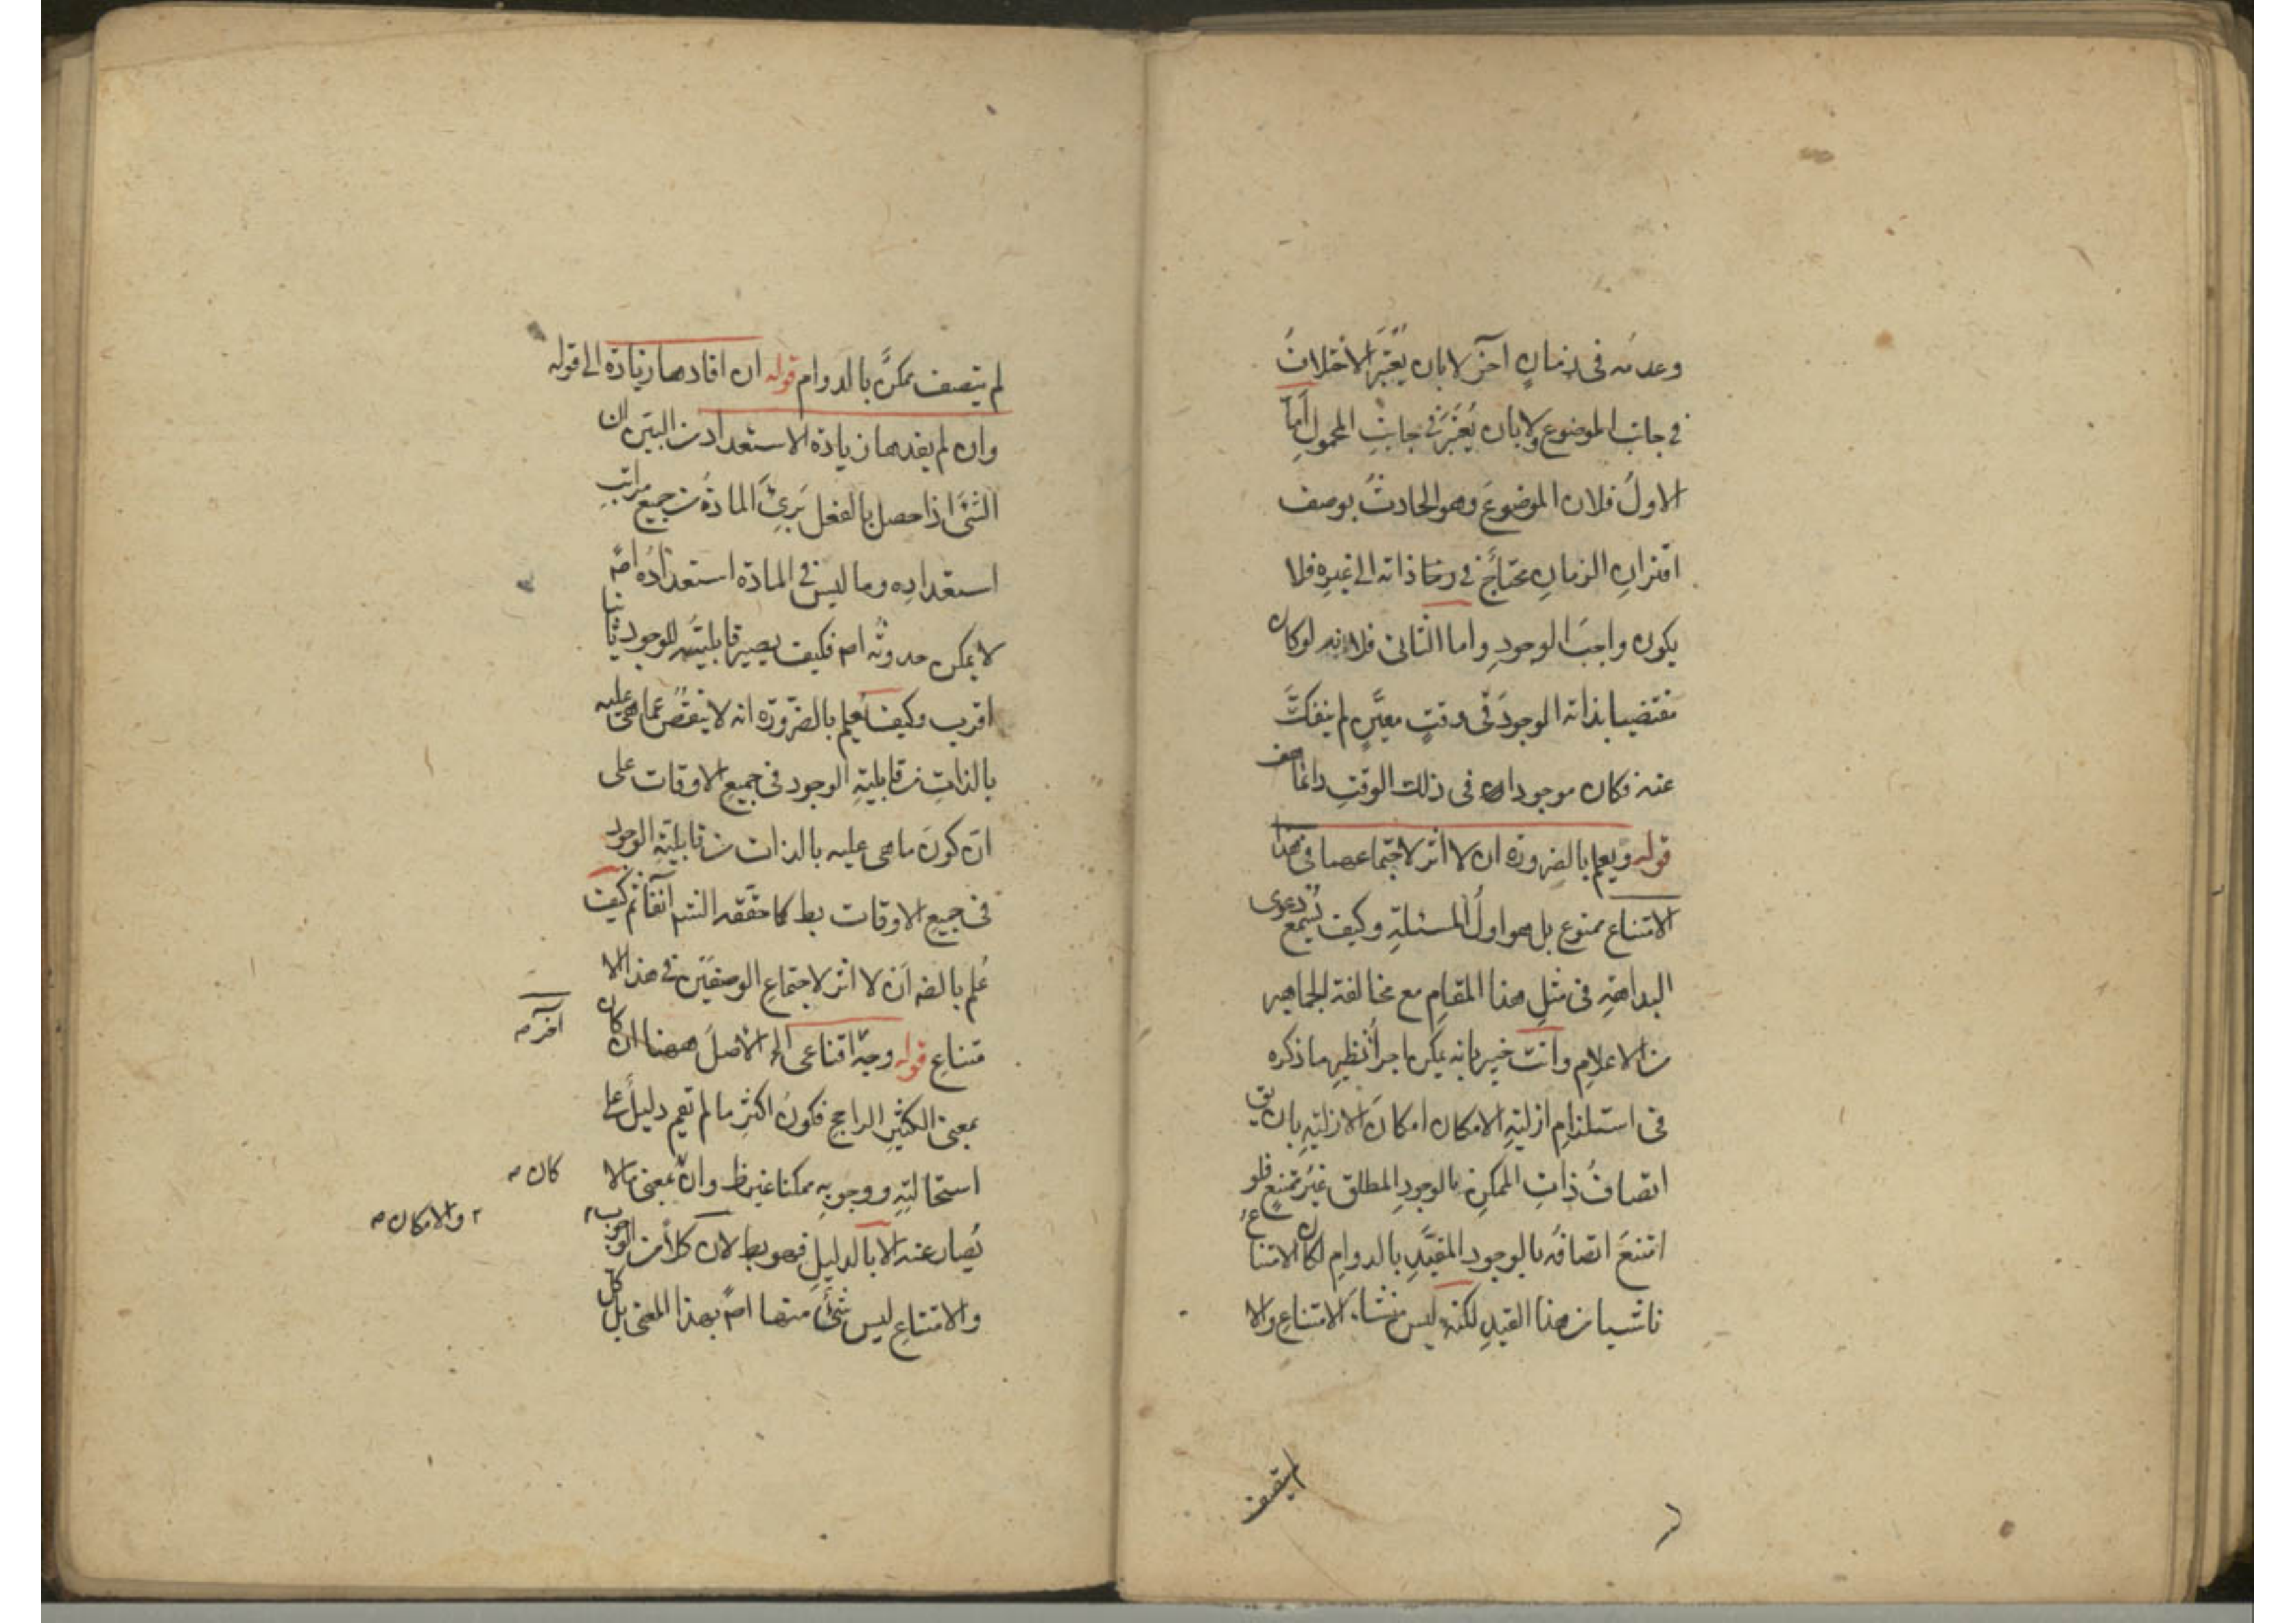 وعدمُه فى زمانٍ آخر لا بان يُعتَبَر الاختلافُ
فى جانب الموضوع ولا بان يُعتَبَر فى جانبِ المحمولِ اَمّا
الاولُ فلان الموضوعَ وهو الحادثُ بوصف
اقترانِ الزمانِ محتاجٌ فى ذاته الى غيرِه فلا
يكون واجبَ الوجودِ واما الثانى فلانه لو كان
مقتضيا بذاته الوجودَ فى وقتٍ معيَّنٍ لم ينفكَّ
عنه فكان موجودا فى ذلك الوقتِ دائما هف
قوله ويعلم بالضرورة ان لا اثر لاجتماعهما فى هذا
الامتناع ممنوع بل هو اولُ المسئلةِ وكيف تُسمع دعوى
البداهةِ فى مثلِ هذا المقامِ مع مخالفة الجماهير
من الاعلامِ وانت خبير بانه يمكن اجراءُ نظيرِ ما ذكره
فى استلزامِ ازليةِ الامكان امكانَ الازليةِ بان يق
اتصافُ ذاتِ الممكنِ بالوجودِ المطلق غيرُ ممتنعٍ فلو
امتنعَ اتصافُه بالوجود المقيَّدِ بالدوامِ لكان الامتناعُ
ناشيا من هذا القيدِ لكنه ليس منشاء الامتناعِ والا
لم يتصف
لم يتصف ممكنٌ بالدوام قوله ان افادها زيادة الى قوله
وان لم يفدها زيادة الاستعداد من البيّن ان
الشئ اذا حصل بالفعل بَرِئَ المادةُ من جميع مراتبِ
استعدادِه وما ليس فى المادة استعدادُه اصلا
لا يمكن حدوثُه اصلا فكيف يصير قابليتُه للوجود ثانيا
اقرب وكيف يُعلم بالضرورة انه لا ينقُصُ عما هى عليه
بالذاتِ من قابليةِ الوجود فى جميعِ الاوقات على
انّ كونَ ما هى عليه بالذات من قابليّةِ الوجود
فى جميعِ الاوقات بط كما حققه الش آنفا ثم كيف
عُلم بالضه اَن لا اثر لاجتماعِ الوصفَين فى هذا الا
متناعِ قوله وجهٌ اقناعى الخ الاصلُ ههنا ان كان
بمعنى الكثيرِ الراجحِ فكونُ اكثرِ ما لم يقم دليلٌ على
استحالتِهِ ووجوبِه ممكنا غير ظ وان بمعنى ما لا
يُصار عنه الا بالدليلِ فهو بط لان كلاً من الوجوب
والامتناعِ ليس شئٌ منها اصلا بهذا المعنى بل كل
آخر صح
كان صح
والامكان صح